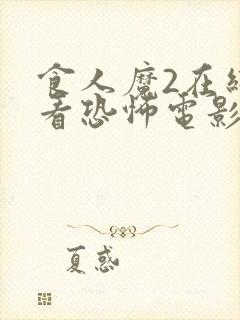 食人魔2在
看恐怖電影
夏惑